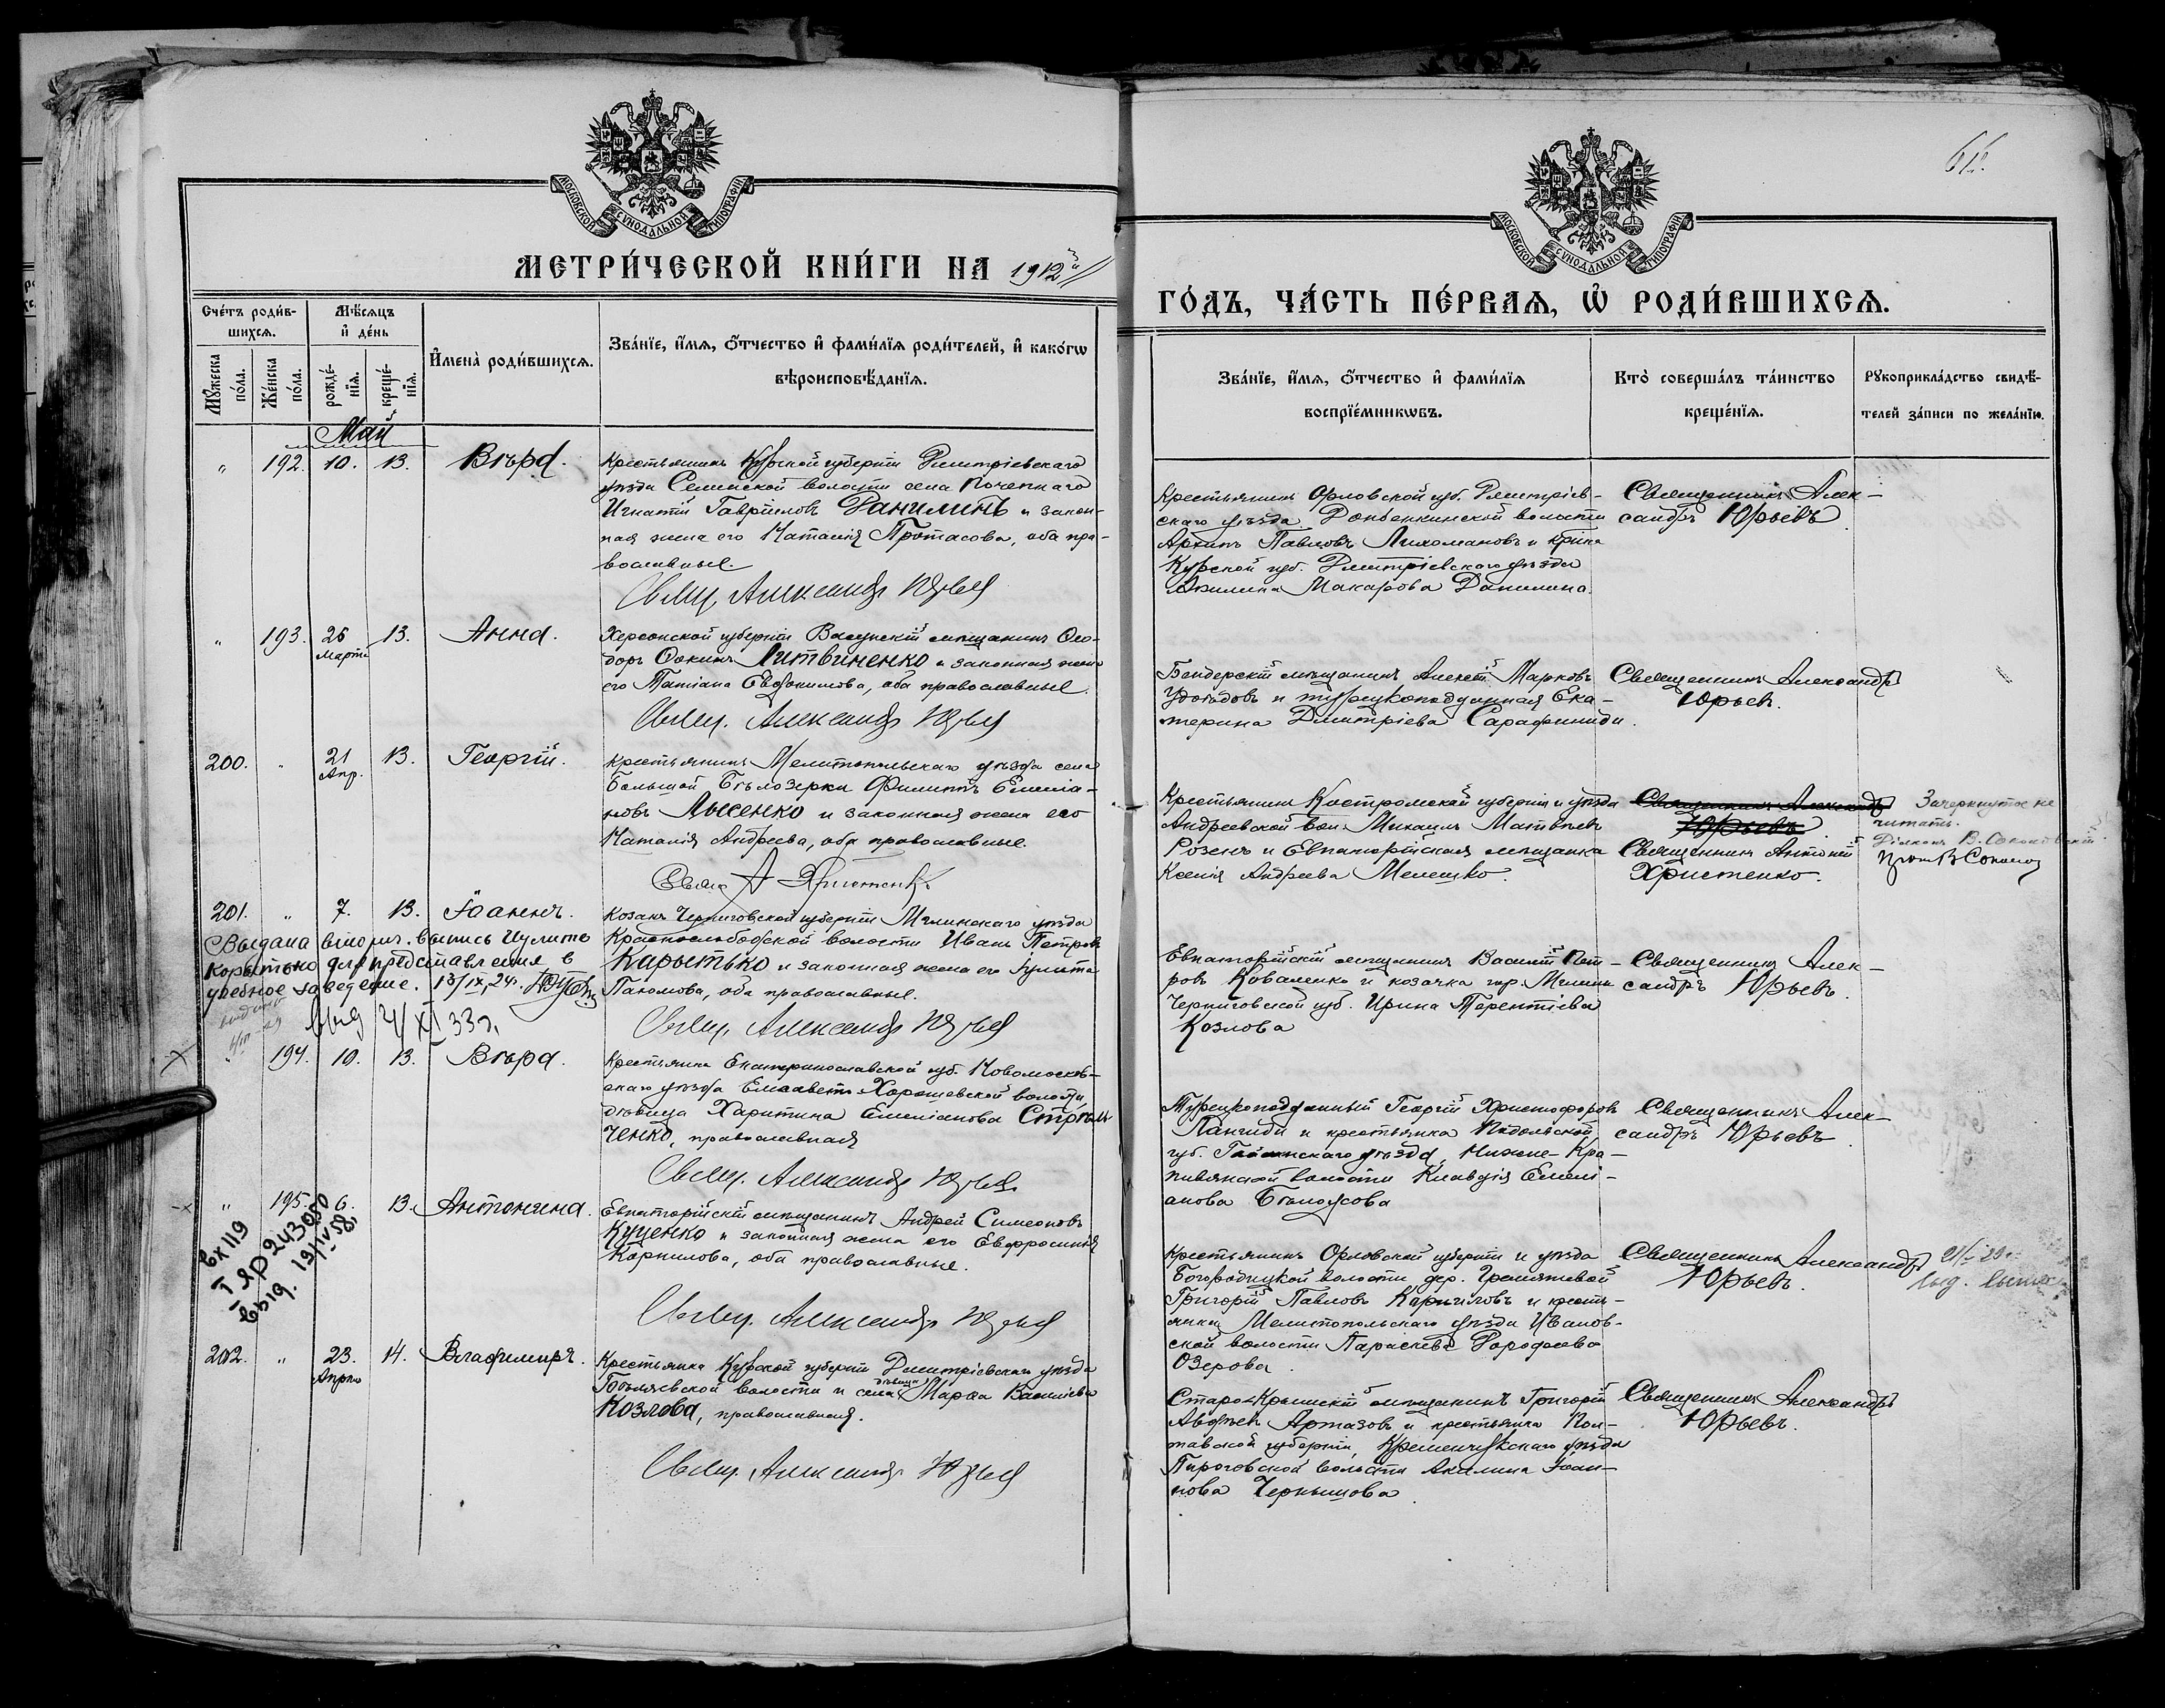 66.
МОСКОВСКОЙ СѴНОДАЛЬНОЙ ТИПОГРАФІИ
МОСКОВСКОЙ СѴНОДАЛЬНОЙ ТИПОГРАФІИ
МЕТРИ́ЧЕСКОЙ КНИ́ГИ НА 1912й
ГО́ДЪ, ЧА́СТЬ ПЕ́РВАЯ, Ѡ РОДИ́ВШИХСЯ.
Сче́тъ роди́в-
шихся.
Мꙋ́жеска по́ла.
Же́нска по́ла.
Мѣ́сяцъ
и де́нь
рожде́-
нія.
креще́-
нія.
Имена̀ роди́вшихся.
Зва́ніе, и́мя, о́тчество и фами́лія роди́телей, и како́гѡ
вѣроисповѣ́данія.
Зва́ніе, и́мя, о́тчество и фами́лія
воспріе́мникѡвъ.
Кто̀ соверша́лъ та́инство
креще́нія.
Рꙋкоприкла́дство свидѣ́-
телей за́писи по жела́нію.
Май
" 192. 10. 13. Вѣра.
Крестьянинъ Курской губерніи Дмитріевскаго
уѣзда Селинской волости села Почепнаго
Игнатій Гавріиловъ Данилинъ и закон-
ная жена его Наталія Протасова, оба пра-
вославные.
Свящ. Александръ Юрьев
Крестьянинъ Орловской губ. Дмитріев-
скаго уѣзда волости
Архипъ Павловъ Лихомановъ и кр-ка
Курской губ. Дмитріевскаго уѣзда
Акилина Макарова Данилина.
Священникъ Алек-
сандръ Юрьевъ
" 193. 26 Марта 13. Анна.
Херсонской губерніи мѣщанинъ Ѳео-
доръ Ѳокинъ Литвиненко и законная жена
его Татіана Евѳимова, оба православные.
Свящ. Александръ Юрьев
Бендерскій мѣщанинъ Алексій Марковъ
Удовъ и турецкоподданная Ека-
терина Дмитріева Сарафиниди.
Священникъ Александръ
Юрьевъ.
200. " 21 Апр. 13. Георгій.
Крестьянинъ Мелитопольскаго уѣзда села
Большой Бѣлозерки Филиппъ Емеліа-
новъ Лысенко и законная жена его
Наталія Андреева, оба православные.
Свящ А Христенко
Крестьянинъ Костромской губерніи и уѣзда
Андреевской вол. Михаилъ Матвѣевъ
Розенъ и Евпаторійская мѣщанка
Ксенія Андреева Мелешко.
Священникъ Александръ
Юрьевъ
Священникъ Антоній
Христенко.
Зачеркнутое не
читать.
Діаконъ В. Соколовскій
201. " 7. 13. Іоаннъ.
Козакъ Черниговской губерніи Мглинскаго уѣзда
Краснослободской волости Иванъ Петровъ
Карытько и законная жена его Іулита
Пахомова, оба православные.
Свящ. Александръ Юрьев
Выдана вторич. выпись Иулите
Корытько для представления в
учебное заведение. 13/IX, 24г.
выд 21/XI 33г.
Евпаторійскій мѣщанинъ Василій Пет-
ровъ Коваленко и козачка гор. Мглина
Черниговской губ. Ирина Терентіева
Козлова
Священникъ Алек-
сандръ Юрьевъ.
" 194. 10. 13. Вѣра.
Крестьянка Екатеринославской губ. Новомосков-
скаго уѣзда Елисавето-Хорошевской волости
дѣвица Харитина Емеліанова Стрѣль-
ченко, православная
Свящ. Александръ Юрьев
Турецкоподданный Георгій Христофоровъ
Пангиди и крестьянка Подольской
губ. Гайсинскаго уѣзда, Нижне-Кра-
пивянской волости Клавдія Емелі-
анова Бѣлоусова
Священникъ Алек-
сандръ Юрьевъ.
" 195. 6. 13. Антонина.
Евпаторійскій мѣщанинъ Андрей Симеоновъ
Куценко и законная жена его Евфросинія
Корнилова, оба православные.
Свящ. Александръ Юрьев
Вх 119
I ЯР 243050
Выд. 19/IV 58.
Крестьянинъ Орловской губерніи и уѣзда
Богородицкой волости дер. Гремячевой
Григорій Павловъ Корниловъ и кресть-
янка Мелитопольскаго уѣзда Иванов-
ской волости Параскева Дороѳеева
Озерова.
Священникъ Александръ
Юрьевъ.
Выд. выпись
202. " 23. Апрѣля 14. Владимиръ.
Крестьянка Курской губерніи Дмитріевскаго уѣзда
волости и села дѣвица Марѳа Васильева
Козлова, православная.
Свящ. Александръ Юрьев
Старо-Крымскій мѣщанинъ Григорій
Авдѣевъ Артазовъ и крестьянка Пол-
тавской губерніи, Кременчугскаго уѣзда
Пироговской волости Акилина Іоан-
нова Чернышова.
Священникъ Александръ
Юрьевъ.